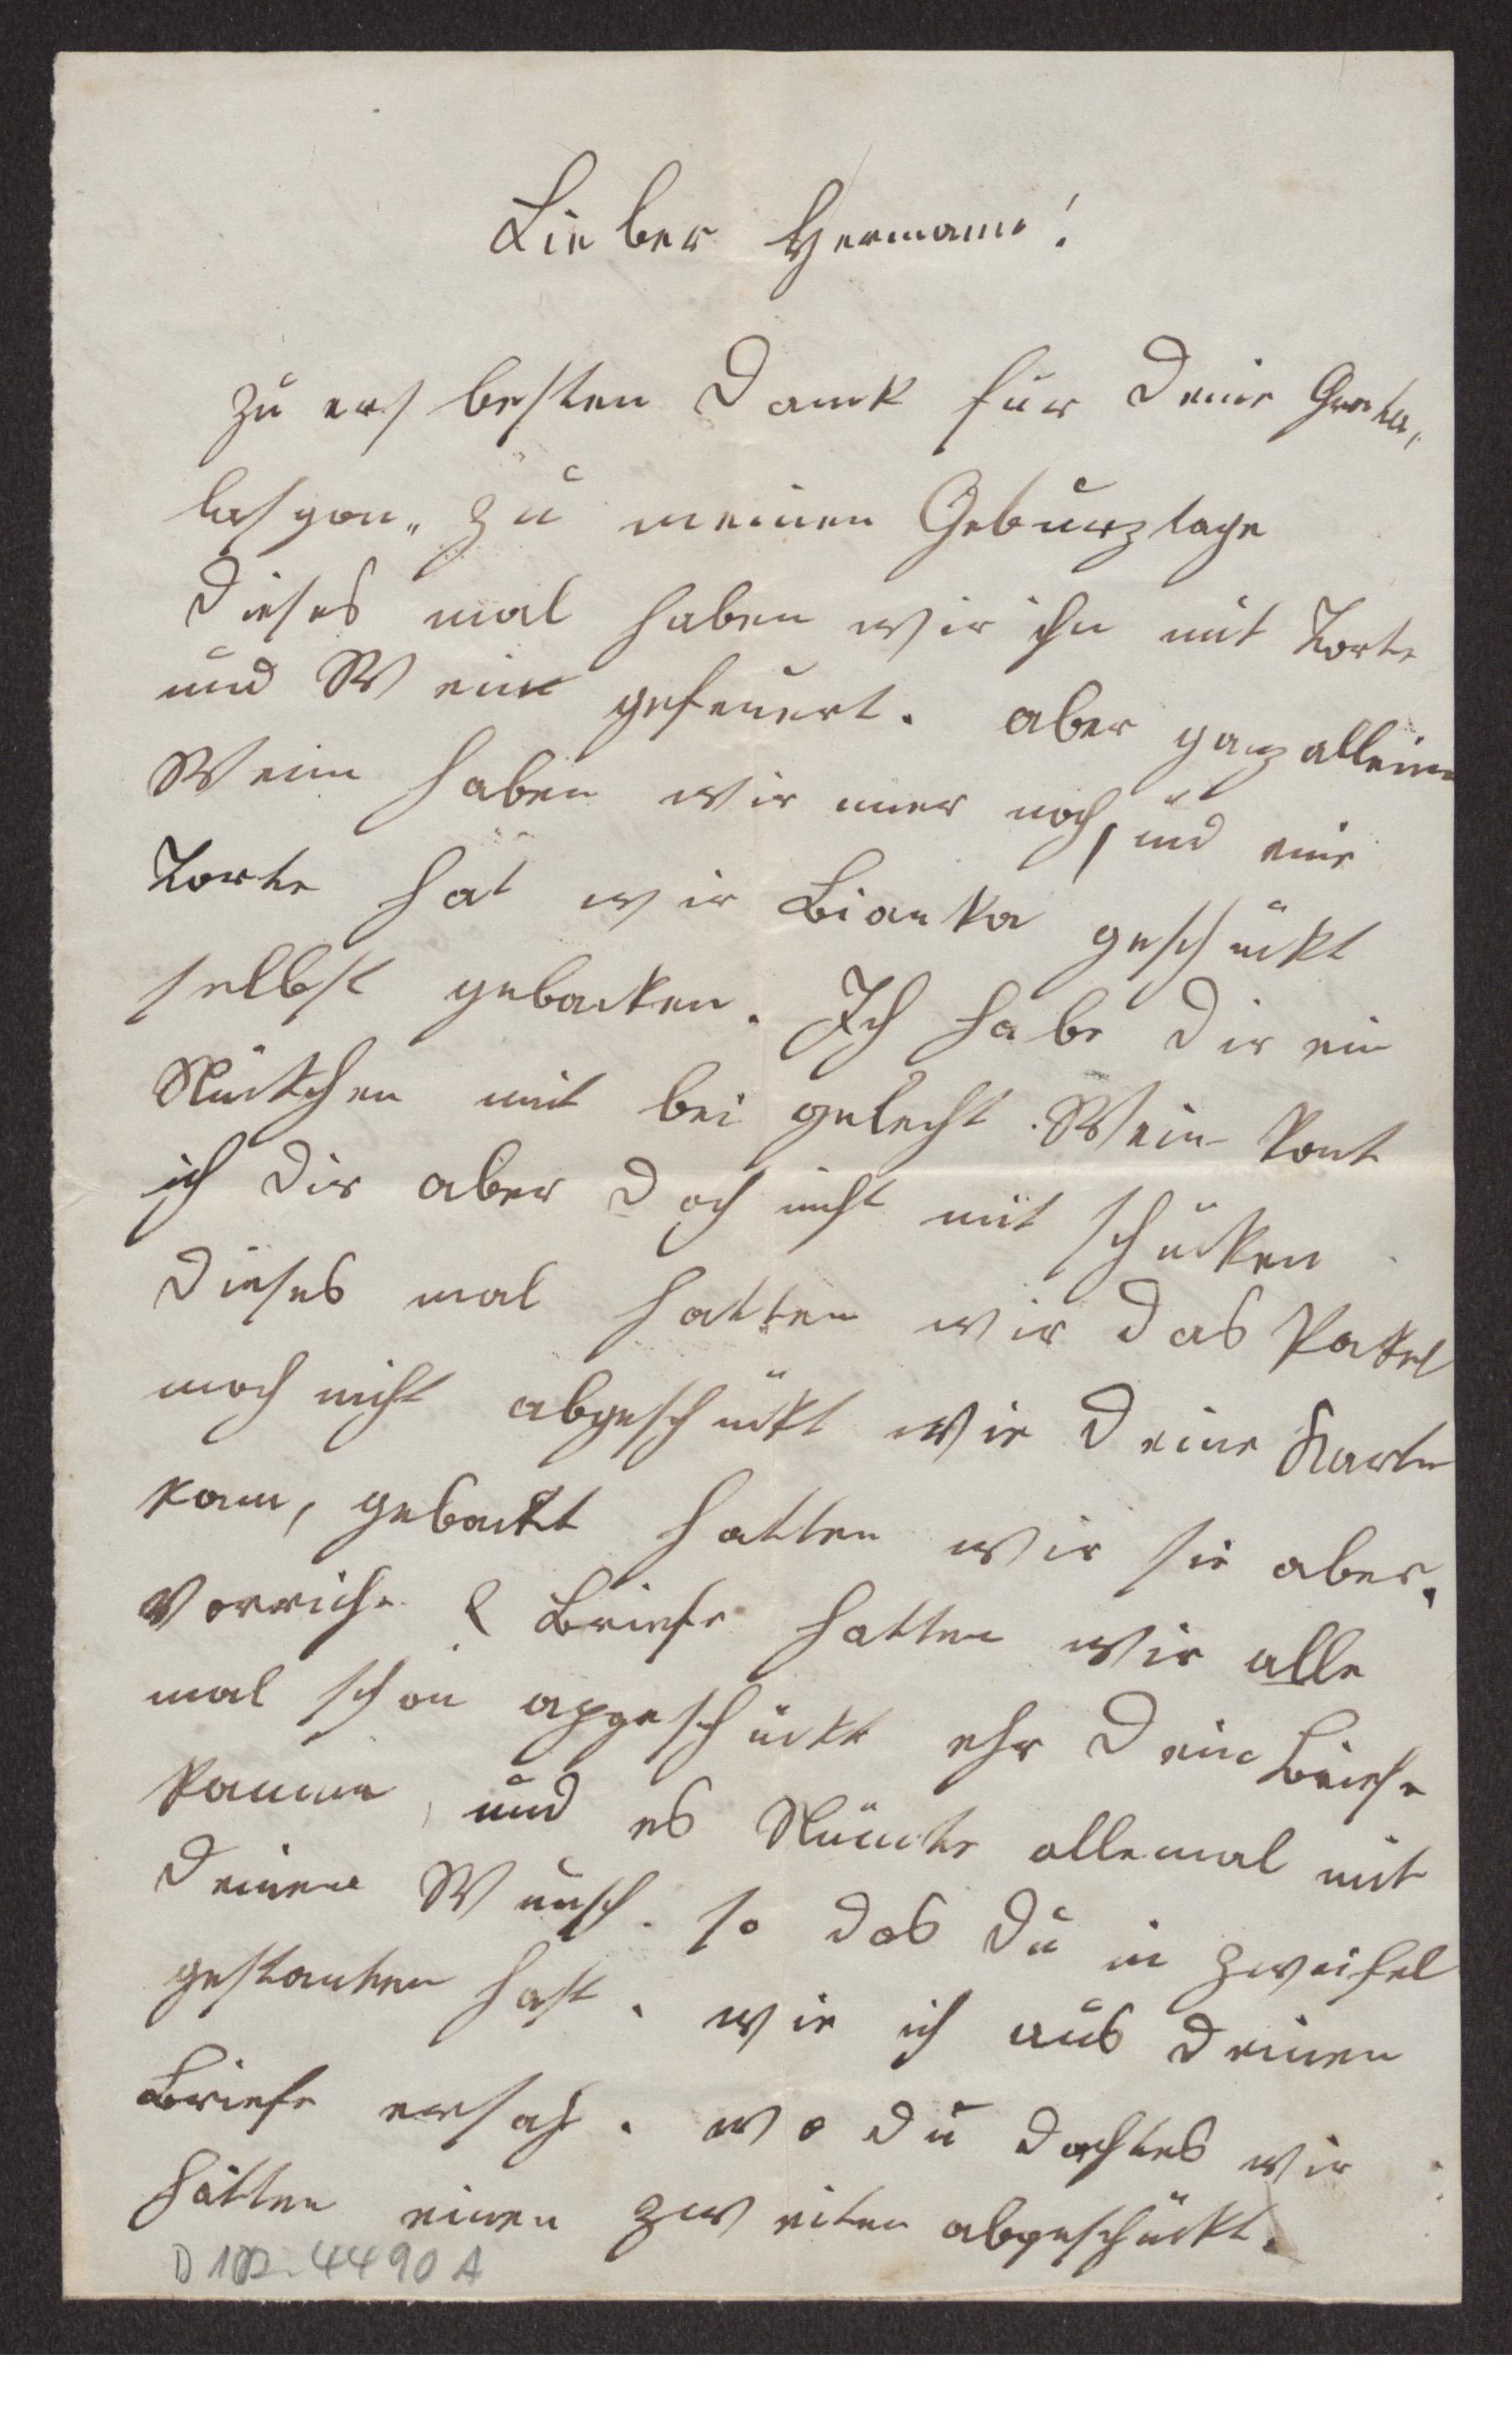 Lieber Hermann!
Zu ers besten Damk für Deine Grata,
lasgon" zu meinen Geburztage
Dieses mal haben wir ihn mit Torte
und Wein gefeuert. aber ganz alleine
Wein haben wir imer noch, und eine
Torte hat wir Bianka geschückt
selbst gebacken. Ich habe Dir ein
Stückchen mit bei gelecht. Wein kont
ich Dir aber Doch nicht mit schücken
Dieses mal hatten wir das Paket
noch nicht abgeschückt wie Deine Karte
kam, gebackt hatten wir sie aber.
Vorriche & Briefe hatten wir alle
mal schon apgeschückt ehr Dein Briefe
kamme, und es Stümte allemal mit
Deinen Wunsch. so das Du in Zweifel
gestanten hast. wie ich aus Deinen
Briefe ersah. wo Du dachtes wir
hätten einen zweiten abgeschückt.
D 102-4490 A